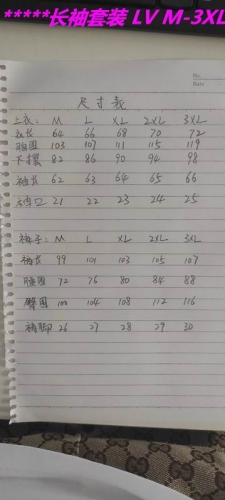 *****长袖套装 LV M-3XL
No.
Date
尺寸表
上衣: M L XL 2XL 3XL
衣长 64 66 68 70 72
胸围 103 107 111 115 119
下摆 82 86 90 94 98
袖长 62 63 64 65 66
袖口 21 22 23 24 25
裤子: M L XL 2XL 3XL
裤长 99 101 103 105 107
腰围 72 76 80 84 88
臀围 100 104 108 112 116
裤脚 26 27 28 29 30